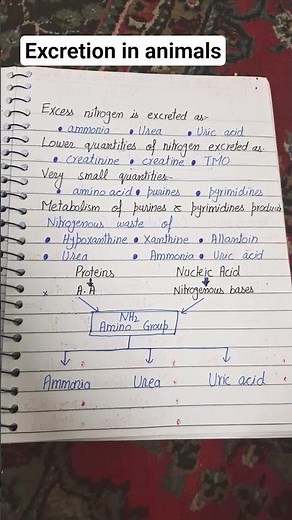 Excretion in animals
Excess nitrogen is excreted as-
• ammonia • Urea • Uric acid
Lower quantities of nitrogen excreted as-
• creatinine • creatine • TMO
Very small quantities-
• amino acid • purines • pyrimidines
Metabolism of purines & pyrimidines produce
Nitrogenous waste of
• Hypoxanthine • Xanthine • Allantoin
• Urea • Ammonia • Uric acid
Proteins Nucleic Acid
A.A Nitrogenous bases
NH2
Amino Group
Ammonia Urea Uric acid